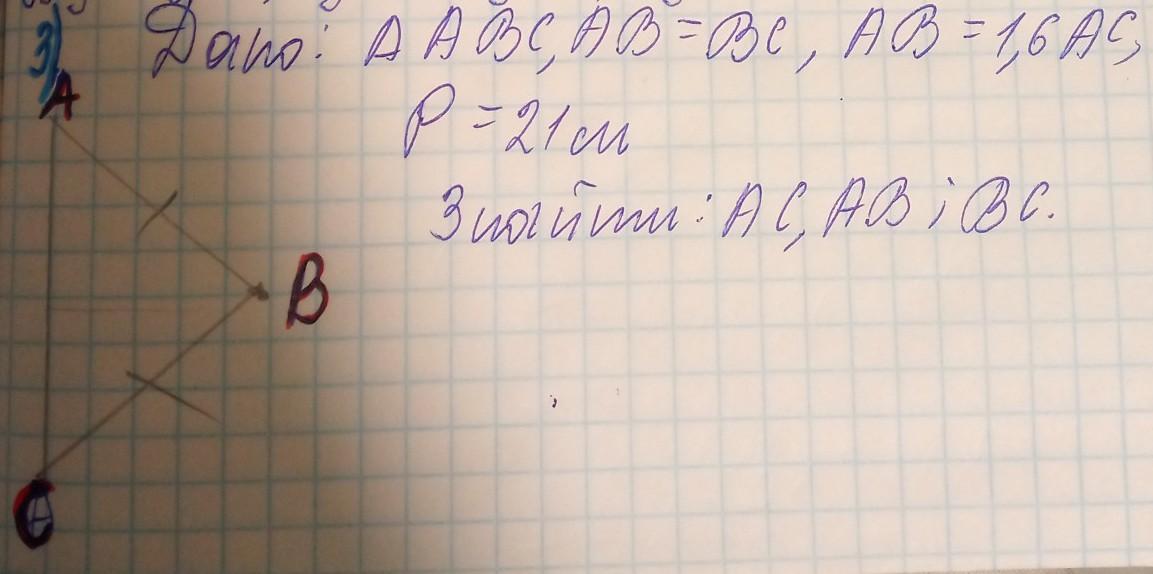 3) Дано: Δ ABC, AB = BC, AB = 1,6 AC,
P = 21 см
Знайти: AC, AB і BC.
A
B
C